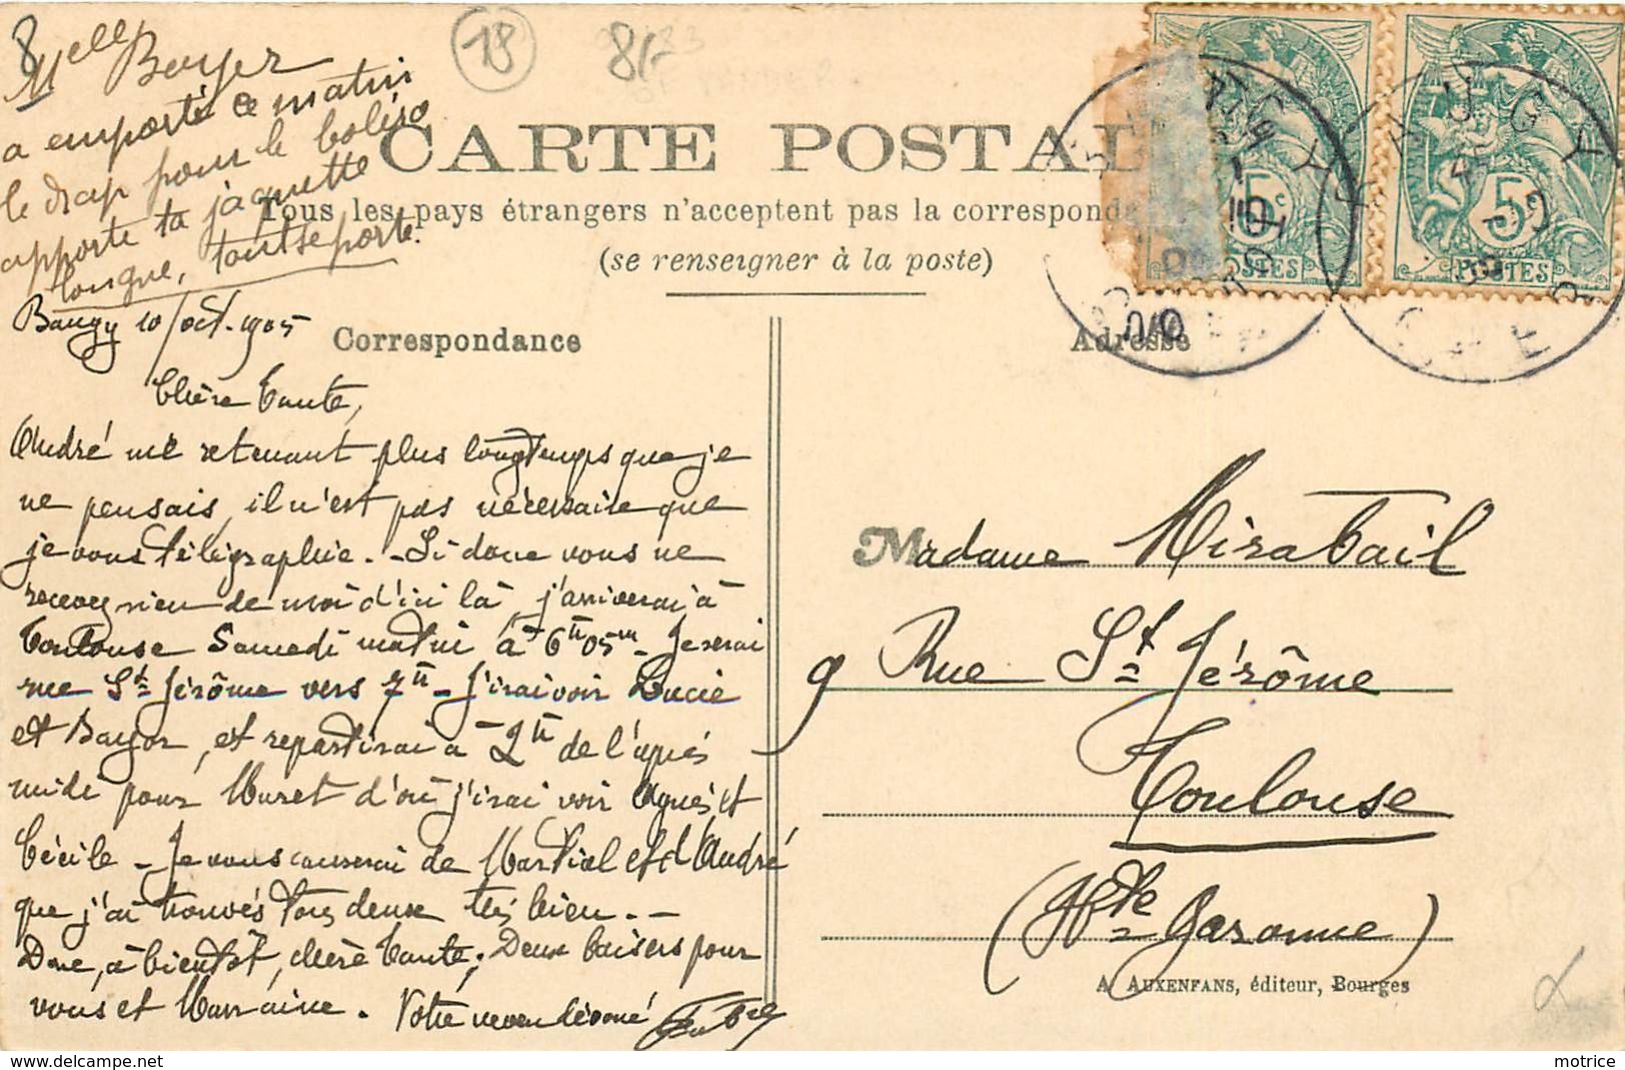 8
Melle Boyer
a emporté ce matin
le drap pour le boléro
apporte ta jaquette
longue, tout se porte.
18
8/-
CARTE POSTALE
Tous les pays étrangers n'acceptent pas la correspondance
(se renseigner à la poste)
5c
POSTES
5c
POSTES
BAUGY
CHER
Baugy 10/oct. 1905
Correspondance
Chère Tante,
André me retenant plus longtemps que je
ne pensais, il n'est pas nécessaire que
je vous télégraphie. - Si donc vous ne
recevez rien de moi d'ici là, j'arriverai à
Toulouse Samedi matin à 6h 05m - Je serai
rue St Jérôme vers 7h - J'irai voir Lucie
et Bayor, et repartirai à 2h de l'après
midi pour Muret d'où j'irai voir Agnès et
Cécile - Je vous causerai de Martial et d'André
que j'ai trouvés tous deux très bien. -
Donc, à bientôt, chère Tante; Deux baisers pour
vous et Marraine. Votre neveu dévoué
Adresse
Madame Mirabail
9 Rue St Jérôme
Toulouse
(Hte Garonne)
A. AUXENFANS, éditeur, Bourges
motrice